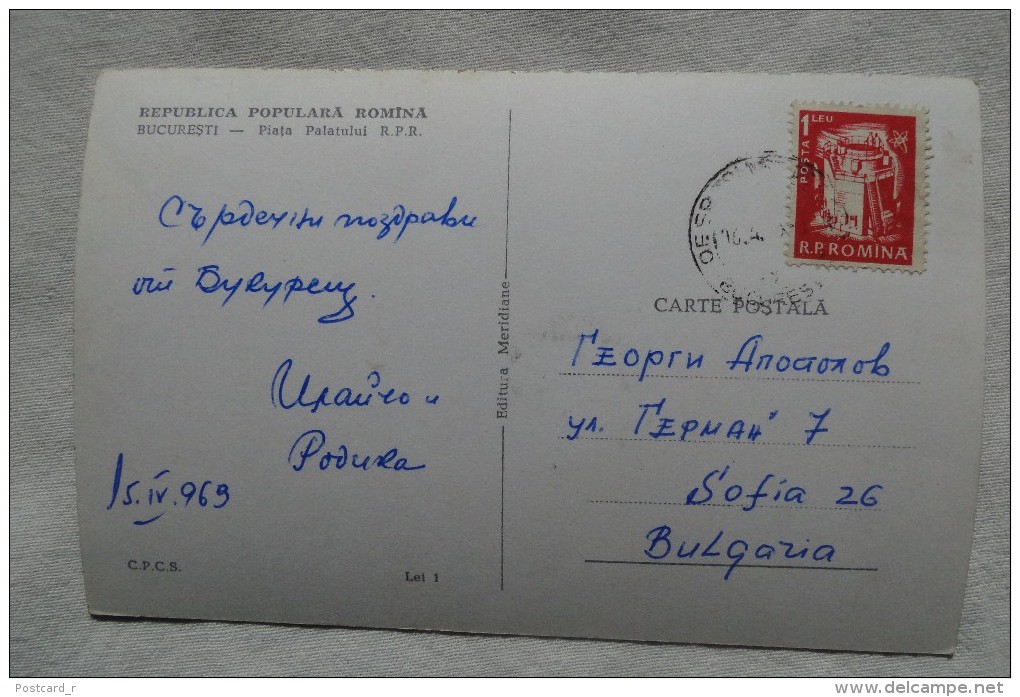 REPUBLICA POPULARĂ ROMÎNĂ
BUCUREȘTI — Piața Palatului R.P.R.
Сърдечни поздрави
от Букурещ.
Илайчо и
Родика
15.IV.963
C.P.C.S.
Lei 1
Editura Meridiane
POSTA 1 LEU
R.P. ROMINA
16.4.
CARTE POȘTALĂ
Георги Апостолов
ул. "Герман" 7
Sofia 26
Bulgaria
Postcard_r
www.delcampe.net